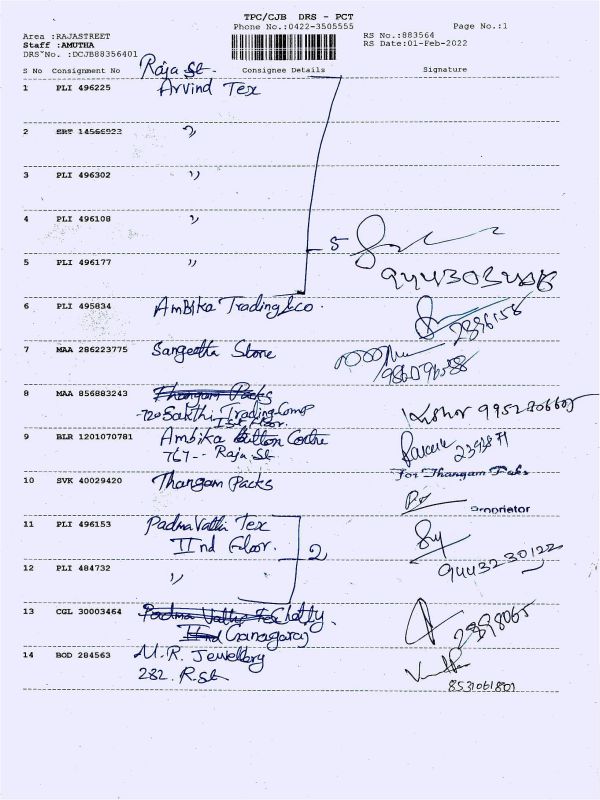 TPC/CJB DRS - PCT
Phone No.:0422-3505555 Page No.:1
Area :RAJASTREET RS No.:883564
Staff :AMUTHA RS Date:01-Feb-2022
DRS No. :DCJB88356401
S No Consignment No Raja St. Consignee Details Signature
1 PLI 496225 Arvind Tex
2 SRT 14566923 "
3 PLI 496302 "
4 PLI 496108 "
5
5 PLI 496177 "
6 PLI 495834 Ambika Trading & co.
2896158
7 MAA 286223775 Sangeetha Store
8 MAA 856883243 Thangam Packs
720 Sakthi Trading Comp
Ist Floor.
Kishor
9 BLR 1201070781 Ambika Button Centre
767-- Raja St
For Thangam Paks
10 SVK 40029420 Thangam Packs
Proprietor
11 PLI 496153 Padma Vathi Tex
IInd Floor. 2
9443230122
12 PLI 484732 "
13 CGL 30003464 Chetty.
Canagaraj
2898065
14 BOD 284563 M.R. Jewellery
282. R.St
8531061801